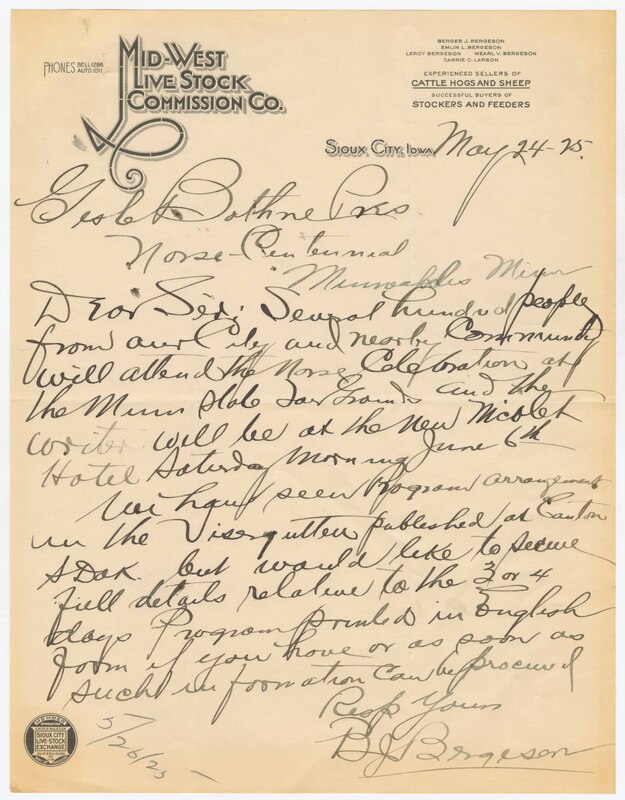 PHONES BELL 1286
AUTO 1011
MID-WEST
LIVE STOCK
COMMISSION CO.
BERGES J. BERGESON
EMLIN L. BERGESON
LEROY BERGESON MEARL V. BERGESON
CARRIE C. LARSON
EXPERIENCED SELLERS OF
CATTLE HOGS AND SHEEP
SUCCESSFUL BUYERS OF
STOCKERS AND FEEDERS
SIOUX CITY, IOWA, May 24-25.
Bothne Pres
Norse-Centennial
Minneapolis Minn
Dear Sir: Several hundred people
from our City and nearby Community
will attend the Norse Celebration at
the Minn State Fair Grounds and the
writer will be at the New Nicolet
Hotel Saturday Morning June 6th
We have seen Program arrangements
in the Visergutten published at Canton
S Dak. but would like to secure
full details relative to the 3 or 4
days Program printed in English
form if you have or as soon as
such information can be procured
Resp Yours
B J Bergeson
5/26/25
MEMBER
SIOUX CITY
LIVE-STOCK
EXCHANGE